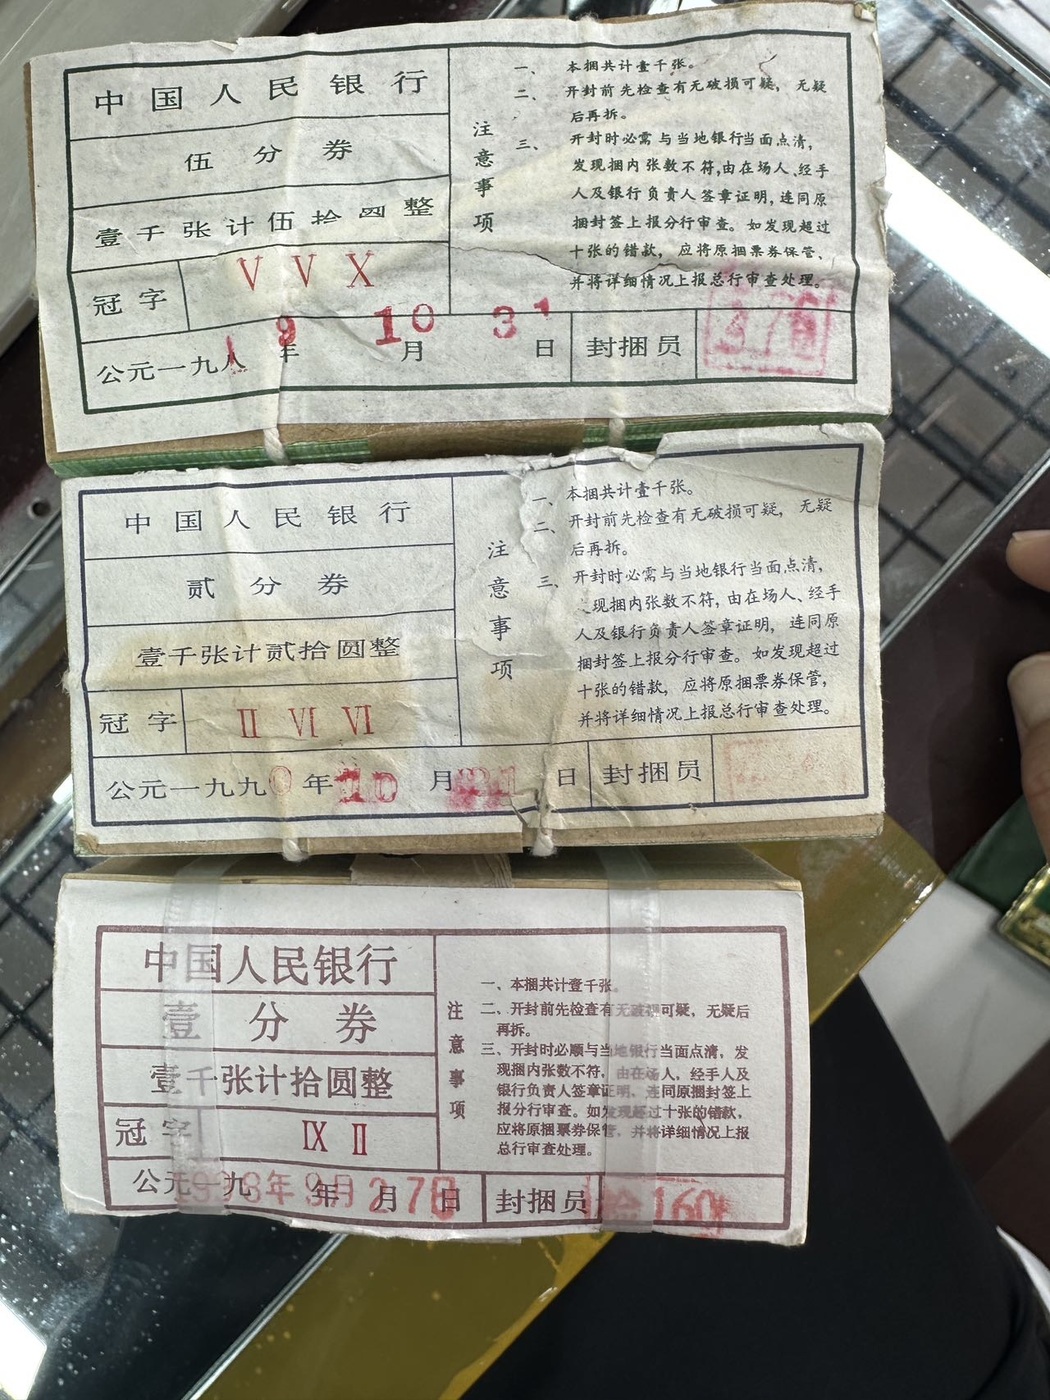 中国人民银行
伍分券
壹千张计伍拾圆整
冠字 V V X
公元一九八 9 年 10 月 31 日 封捆员
注意事项
一、本捆共计壹千张。
二、开封前先检查有无破损可疑，无疑
后再拆。
三、开封时必需与当地银行当面点清，
发现捆内张数不符，由在场人、经手
人及银行负责人签章证明，连同原
捆封签上报分行审查。如发现超过
十张的错款，应将原捆票券保管、
并将详细情况上报总行审查处理。
中国人民银行
贰分券
壹千张计贰拾圆整
冠字 II VI VI
公元一九九0年10月21日 封捆员
注意事项
一、本捆共计壹千张。
二、开封前先检查有无破损可疑，无疑
后再拆。
三、开封时必需与当地银行当面点清，
现捆内张数不符，由在场人、经手
人及银行负责人签章证明，连同原
捆封签上报分行审查。如发现超过
十张的错款，应将原捆票券保管，
并将详细情况上报总行审查处理。
中国人民银行
壹分券
壹千张计拾圆整
冠字 IX II
公元一九 年 月 日 封捆员 160
注意事项
一、本捆共计壹千张。
二、开封前先检查有无破损可疑，无疑后
再拆。
三、开封时必顺与当地银行当面点清，发
现捆内张数不符，由在场人，经手人及
银行负责人签章证明、连同原捆封签上
报分行审查。如发现超过十张的错款，
应将原捆票券保管，并将详细情况上报
总行审查处理。